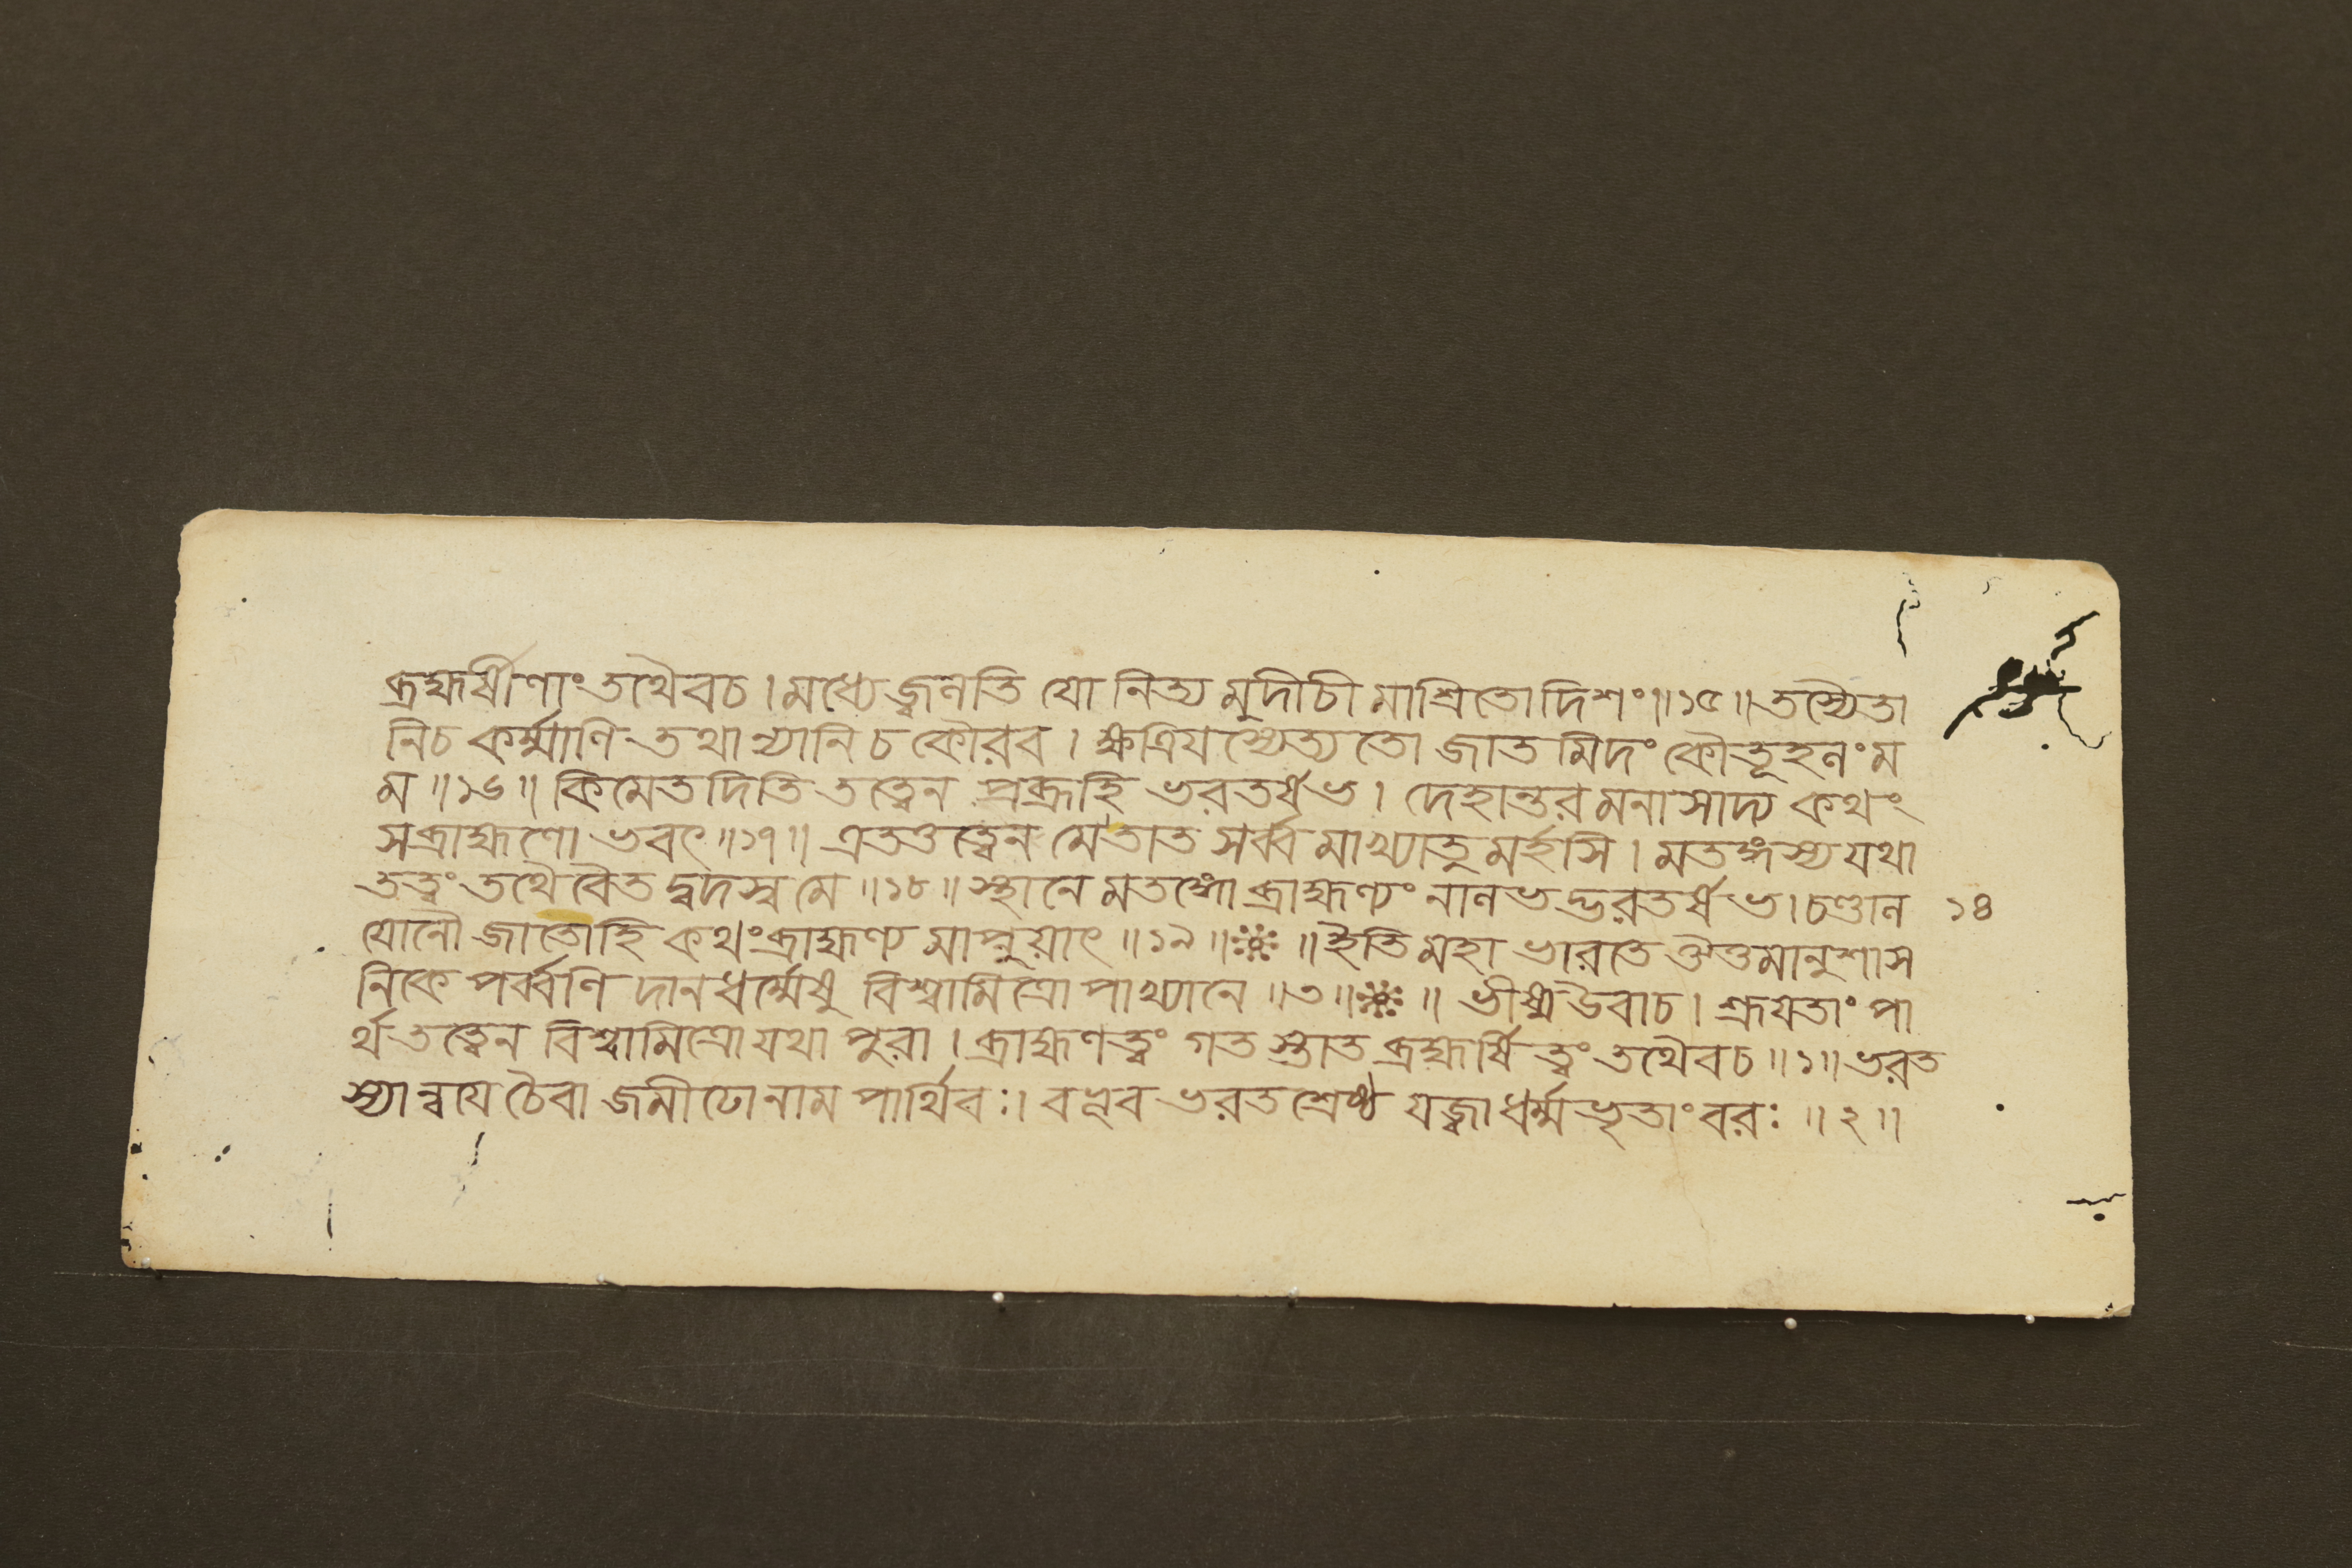 ব্রহ্মর্ষীণাং তথৈবচ। মধ্যে জ্বলতি যো নিত্যমুদীচীমাশ্রিতোদিশং॥১৫॥ তস্যৈতা
নিচ কর্ম্মাণি তথান্যানি চ কৌরব। ক্ষত্রিযস্যেত্যতো জাতমিদং কৌতূহলং ম
ম॥১৬॥ কিমেতদিতি তত্ত্বেন প্রব্রূহি ভরতর্ষভ। দেহান্তরমনাসাদ্য কথং
সব্রাহ্মণো ভবৎ॥১৭॥ এতত্তত্ত্বেন মেতাত সর্ব্বমাখ্যাতুমর্হসি। মতঙ্গস্য যথা
তত্ত্বং তথৈবৈতদ্বদস্ব মে॥১৮॥ স্থানে মতঙ্গো ব্রাহ্মণ্যং নালভদ্ভরতর্ষভ। চণ্ডাল
১৪
যোনৌ জাতোহি কথং ব্রাহ্মণ্যমাপ্নুয়াৎ॥১৯॥ ॥ইতি মহাভারতে ঔত্তমানুশাস
নিকে পর্ব্বণি দানধর্ম্মেষু বিশ্বামিত্রোপাখ্যানে॥৩॥ ॥ ভীষ্ম উবাচ। শ্রূযতাং পা
র্থ তত্ত্বেন বিশ্বামিত্রো যথা পুরা। ব্রাহ্মণত্বং গতস্তাত ব্রহ্মর্ষিত্বং তথৈবচ॥১॥ ভরত
স্যান্বযে চৈবাজমীঢোনাম পার্থিবঃ। বভূব ভরতশ্রেষ্ঠ যজ্বা ধর্ম্মভৃতাং বরঃ॥২॥